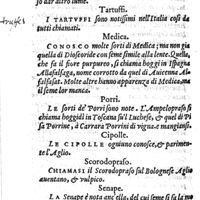 Tartuffi.
I TARTVFFI sono notissimi nell'Italia cosi da
tutti chiamati.
Medica.
CONOSCO molte sorti di Medica; ma non gia
quella di Dioscoride con seme simile alla lente. Quella,
che fa il fiore purpureo, si chiama hoggi in Ispagna
Allafalfaga, nome corrotto da quel di Auicenna Al-
falsafat. Molte altre hanno apparenza di Medica, ma
il seme lor manca.
Porri.
LE sorti de' Porri sono note. L'Ampeloprasso si
chiama hoggidi in Toscana su'l Luchese, & quel di Pi-
sa Porrine, à Carrara Porrini di vigna, e mangiansi.
Cipolle.
LE CIPOLLE ogniuno conosce, & parimen-
te l'Aglio.
Scorodoprasso.
CHIAMASI il Scorodoprasso sul Bolognese Aglio
& vulpico.
Senape.
LA Senape è nota anch'ella, del cui seme si fa la